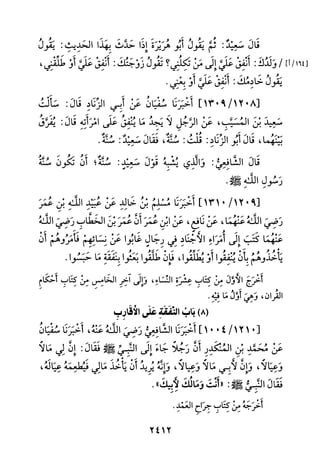 قَالَ سَعِيدٌ: ثُمَّ يَقُولُ أَبُو هُرَيْرَةَ إِذَا حَدَّثَ بِهَذَا الحَدِيثِ: يَقُولُ
[١٦٤/أ] / وَلَدُكَ: أَنْفِقْ عَلَيَّ إِلَى مَنْ تَكِلُنِي؟ تَقُولُ زَوْجَتُكَ: أَنْفِقْ عَلَيَّ أَوْ طَلِّقْنِي،
يَقُولُ خَادِمُكَ: أَنْفِقْ عَلَيَّ أَوْ بِعْنِي.
[١٢٠٨/ ١٣٠٩] أَخْبَرَنَا سُفْيَانُ عَنْ أَبِي الزِّنَادِ قَالَ: سَأَلْتُ
سَعِيدَ بْنَ المُسَيَّبِ، عَنِ الرَّجُلِ لَا يَجِدُ مَا يُنْفِقُ عَلَى امْرَأَتِهِ قَالَ: يُفَرَّقُ
بَيْنَهُمَا، قَالَ أَبُو الزِّنَادِ: قُلْتُ: سُنَّةٌ، فَقَالَ سَعِيدٌ: سُنَّةٌ.
قَالَ الشَّافِعِيُّ: وَالَّذِي يُشْبِهُ قَوْلَ سَعِيدٍ: سُنَّةٌ؛ أَنْ تَكُونَ سُنَّةُ
رَسُولِ اللهِ ﷺ.
[١٢٠٩/ ١٣١٠] أَخْبَرَنَا مُسْلِمُ بْنُ خَالِدٍ عَنْ عُبَيْدِ اللهِ بْنِ عُمَرَ
رَضِيَ اللهُ عَنْهُمَا، عَنْ نَافِعٍ، عَنِ ابْنِ عُمَرَ أَنَّ عُمَرَ بْنَ الخَطَّابِ رَضِيَ اللهُ
عَنْهُمَا كَتَبَ إِلَى أُمَرَاءِ الأَجْنَادِ فِي رِجَالٍ غَابُوا عَنْ نِسَائِهِمْ فَأَمَرُوهُمْ أَنْ
يَأْخُذُوهُمْ بِأَنْ يُنْفِقُوا أَوْ يُطَلِّقُوا، فَإِنْ طَلَّقُوا بَعَثُوا بِنَفَقَةِ مَا حَبَسُوا.
أَخْرَجَ الأَوَّلَ مِنْ كِتَابِ عِشْرَةِ النِّسَاءِ، وَإِلَى آخِرِ الخَامِسِ مِنْ كِتَابِ أَحْكَامِ
القُرآن، وَهِيَ أَوَّلُ مَا فِيهِ.
(٨) بَابُ النَّفَقَةِ عَلَى الأَقَارِبِ
[١٢١٠/ ١٠٠٤] أَخْبَرَنَا الشَّافِعِيُّ رَضِيَ اللهُ عَنْهُ، أَخْبَرَنَا سُفْيَانُ
عَنْ مُحَمَّدِ بْنِ المُنْكَدِرِ أَنَّ رَجُلًا جَاءَ إِلَى النَّبِيِّ ﷺ فَقَالَ: إِنَّ لِي مَالًا
وَعِيَالًا، وَإِنَّ لِأَبِي مَالًا وَعِيَالًا، وَإِنَّهُ يُرِيدُ أَنْ يَأْخُذَ مَالِي فَيُطْعِمَهُ عِيَالَهُ،
فَقَالَ النَّبِيُّ ﷺ: «أَنْتَ وَمَالُكَ لِأَبِيكَ».
أَخْرَجَهُ مِنْ كِتَابِ جِرَاحِ العَمْدِ.
٢٤١٢